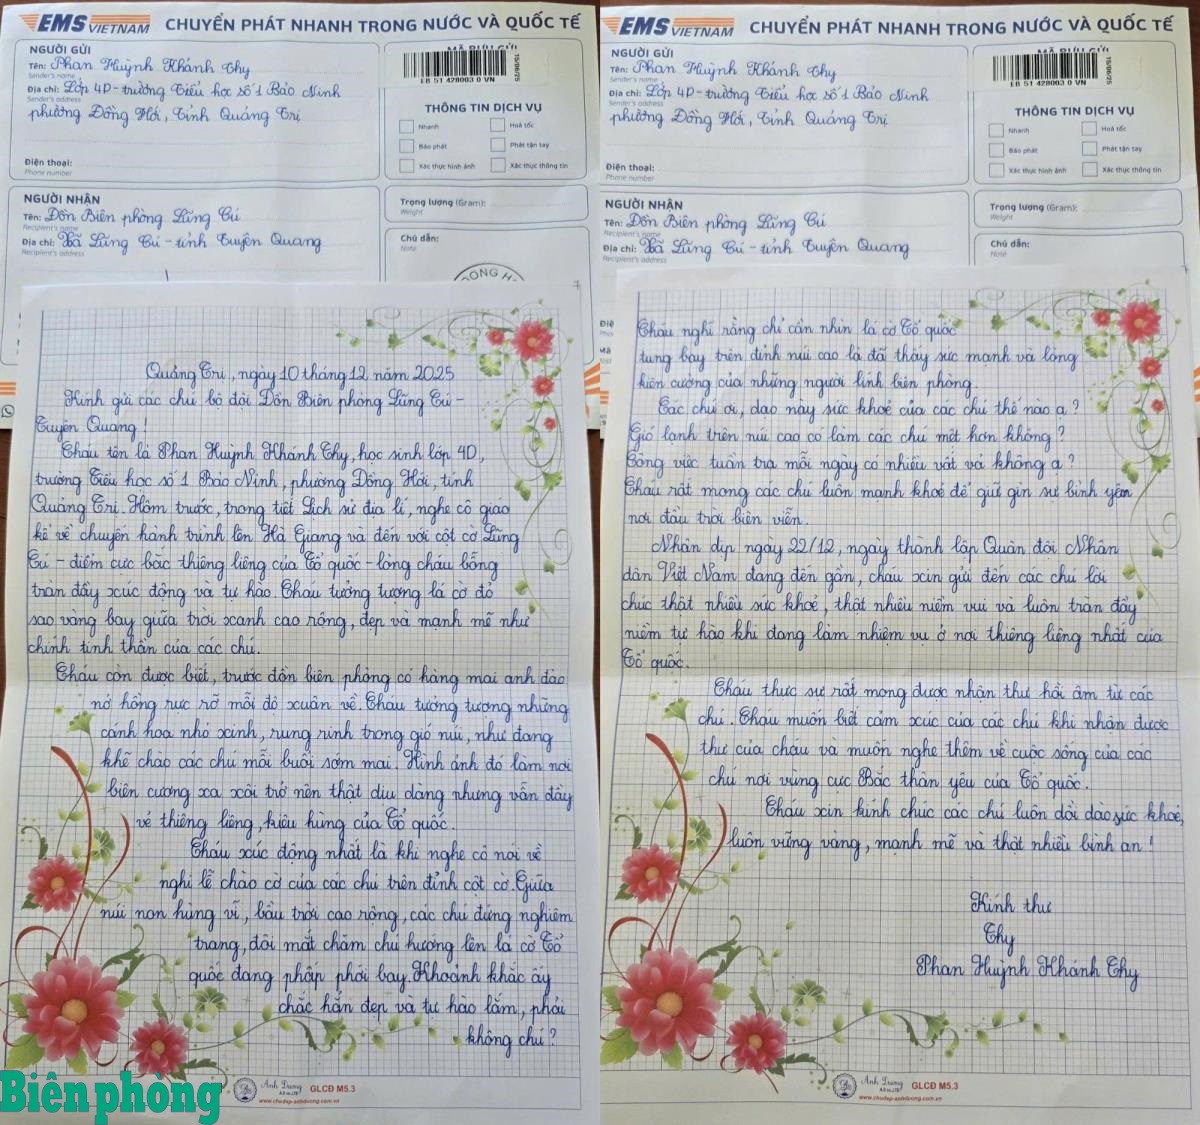 EMS VIETNAM CHUYỂN PHÁT NHANH TRONG NƯỚC VÀ QUỐC TẾ
NGƯỜI GỬI
Tên: Phan Huỳnh Khánh Thy
Sender's name
Địa chỉ: Lớp 4D - trường Tiểu học số 1 Bảo Ninh
Sender's address
phường Đồng Hới, Tỉnh Quảng Trị
Điện thoại:
Phone number
MÃ BƯU GỬI
EB 51 428003 0 VN
15/06/25
THÔNG TIN DỊCH VỤ
Nhanh
Hoả tốc
Báo phát
Phát tận tay
Xác thực hình ảnh
Xác thực thông tin
NGƯỜI NHẬN
Tên: Đồn Biên phòng Lũng Cú
Recipient's name
Địa chỉ: Xã Lũng Cú - tỉnh Tuyên Quang
Recipient's address
Trọng lượng (Gram):
Weight
Chú dẫn:
Note
ĐỒNG H
Quảng Trị, ngày 10 tháng 12 năm 2025
Kính gửi các chú bộ đội Đồn Biên phòng Lũng Cú -
Tuyên Quang!
Cháu tên là Phan Huỳnh Khánh Thy, học sinh lớp 4D,
trường Tiểu học số 1 Bảo Ninh, phường Đồng Hới, tỉnh
Quảng Trị. Hôm trước, trong tiết Lịch sử địa lí, nghe cô giáo
kể về chuyến hành trình lên Hà Giang và đến với cột cờ Lũng
Cú - điểm cực bắc thiêng liêng của Tổ quốc - lòng cháu bỗng
tràn đầy xúc động và tự hào. Cháu tưởng tượng lá cờ đỏ
sao vàng bay giữa trời xanh cao rộng, đẹp và mạnh mẽ như
chính tinh thần của các chú.
Cháu còn được biết, trước đồn biên phòng có hàng mai anh đào
nở hồng rực rỡ mỗi độ xuân về. Cháu tưởng tượng những
cánh hoa nhỏ xinh, rung rinh trong gió núi, như đang
khẽ chào các chú mỗi buổi sớm mai. Hình ảnh đó làm nơi
biên cương xa xôi trở nên thật dịu dàng nhưng vẫn đầy
vẻ thiêng liêng, kiêu hùng của Tổ quốc.
Cháu xúc động nhất là khi nghe cô nói về
nghi lễ chào cờ của các chú trên đỉnh cột cờ. Giữa
núi non hùng vĩ, bầu trời cao rộng, các chú đứng nghiêm
trang, đôi mắt chăm chú hướng lên lá cờ Tổ
quốc đang phấp phới bay. Khoảnh khắc ấy
chắc hẳn đẹp và tự hào lắm, phải
không chú?
Anh Dương
GLCĐ M5.3
www.chudep-anhduong.com.vn
Biên phòng
EMS VIETNAM CHUYỂN PHÁT NHANH TRONG NƯỚC VÀ QUỐC TẾ
NGƯỜI GỬI
Tên: Phan Huỳnh Khánh Thy
Sender's name
Địa chỉ: Lớp 4D - trường Tiểu học số 1 Bảo Ninh
Sender's address
phường Đồng Hới, Tỉnh Quảng Trị
Điện thoại:
Phone number
MÃ BƯU GỬI
EB 51 428003 0 VN
15/06/25
THÔNG TIN DỊCH VỤ
Nhanh
Hoả tốc
Báo phát
Phát tận tay
Xác thực hình ảnh
Xác thực thông tin
NGƯỜI NHẬN
Tên: Đồn Biên phòng Lũng Cú
Recipient's name
Địa chỉ: Xã Lũng Cú - tỉnh Tuyên Quang
Recipient's address
Trọng lượng (Gram):
Weight
Chú dẫn:
Note
Cháu nghĩ rằng chỉ cần nhìn lá cờ Tổ quốc
tung bay trên đỉnh núi cao là đã thấy sức mạnh và lòng
kiên cường của những người lính biên phòng.
Các chú ơi, dạo này sức khoẻ của các chú thế nào ạ?
Gió lạnh trên núi cao có làm các chú mệt hơn không?
Công việc tuần tra mỗi ngày có nhiều vất vả không ạ?
Cháu rất mong các chú luôn mạnh khoẻ để giữ gìn sự bình yên
nơi đầu trời biên viễn.
Nhân dịp ngày 22/12, ngày thành lập Quân đội Nhân
dân Việt Nam đang đến gần, cháu xin gửi đến các chú lời
chúc thật nhiều sức khoẻ, thật nhiều niềm vui và luôn tràn đầy
niềm tự hào khi đang làm nhiệm vụ ở nơi thiêng liêng nhất của
Tổ quốc.
Cháu thực sự rất mong được nhận thư hồi âm từ các
chú. Cháu muốn biết cảm xúc của các chú khi nhận được
thư của cháu và muốn nghe thêm về cuộc sống của các
chú nơi vùng cực Bắc thân yêu của Tổ quốc.
Cháu xin kính chúc các chú luôn dồi dào sức khoẻ,
luôn vững vàng, mạnh mẽ và thật nhiều bình an!
Kính thư
Thy
Phan Huỳnh Khánh Thy
Anh Dương
GLCĐ M5.3
www.chudep-anhduong.com.vn